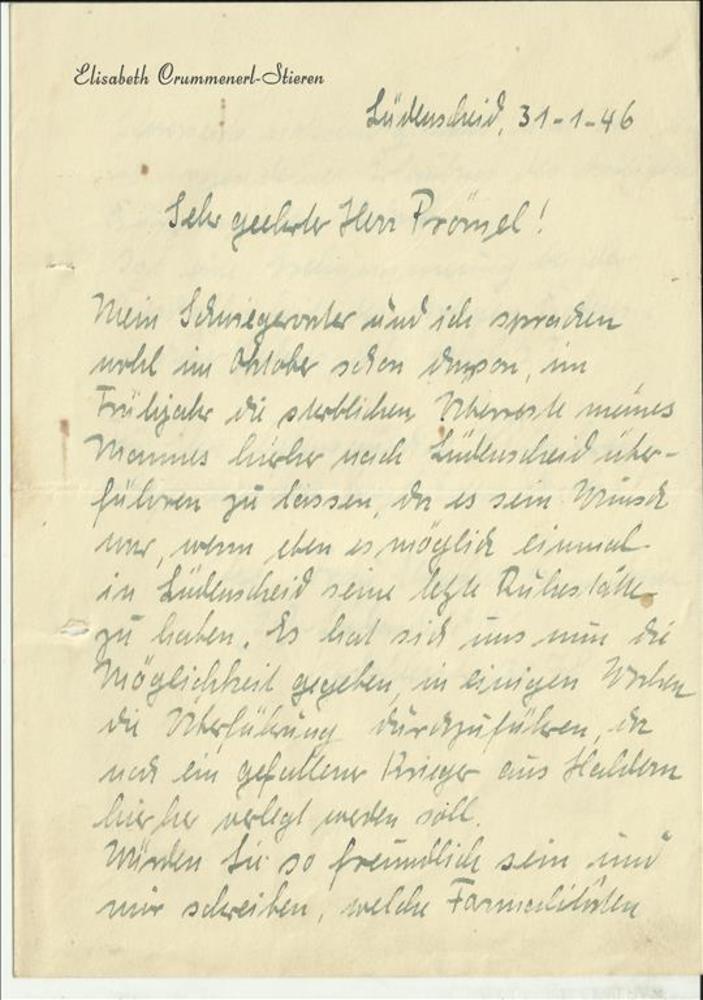 Elisabeth Crummenerl-Stieren
Lüdenscheid, 31-1-46
Sehr geehrter Herr Prömel!
Mein Schwiegervater und ich sprachen
wohl im Oktober schon davon, im
Frühjahr die sterblichen Überreste meines
Mannes hierher nach Lüdenscheid über-
führen zu lassen, da es sein Wunsch
war, wenn eben es möglich einmal
in Lüdenscheid seine letzte Ruhestätte
zu haben. Es hat sich uns nun die
Möglichkeit gegeben, in einigen Wochen
die Überführung durchzuführen, da
noch ein gefallener Krieger aus Haldern
hierher verlegt werden soll.
Würden Sie so freundlich sein und
mir schreiben, welche Formalitäten